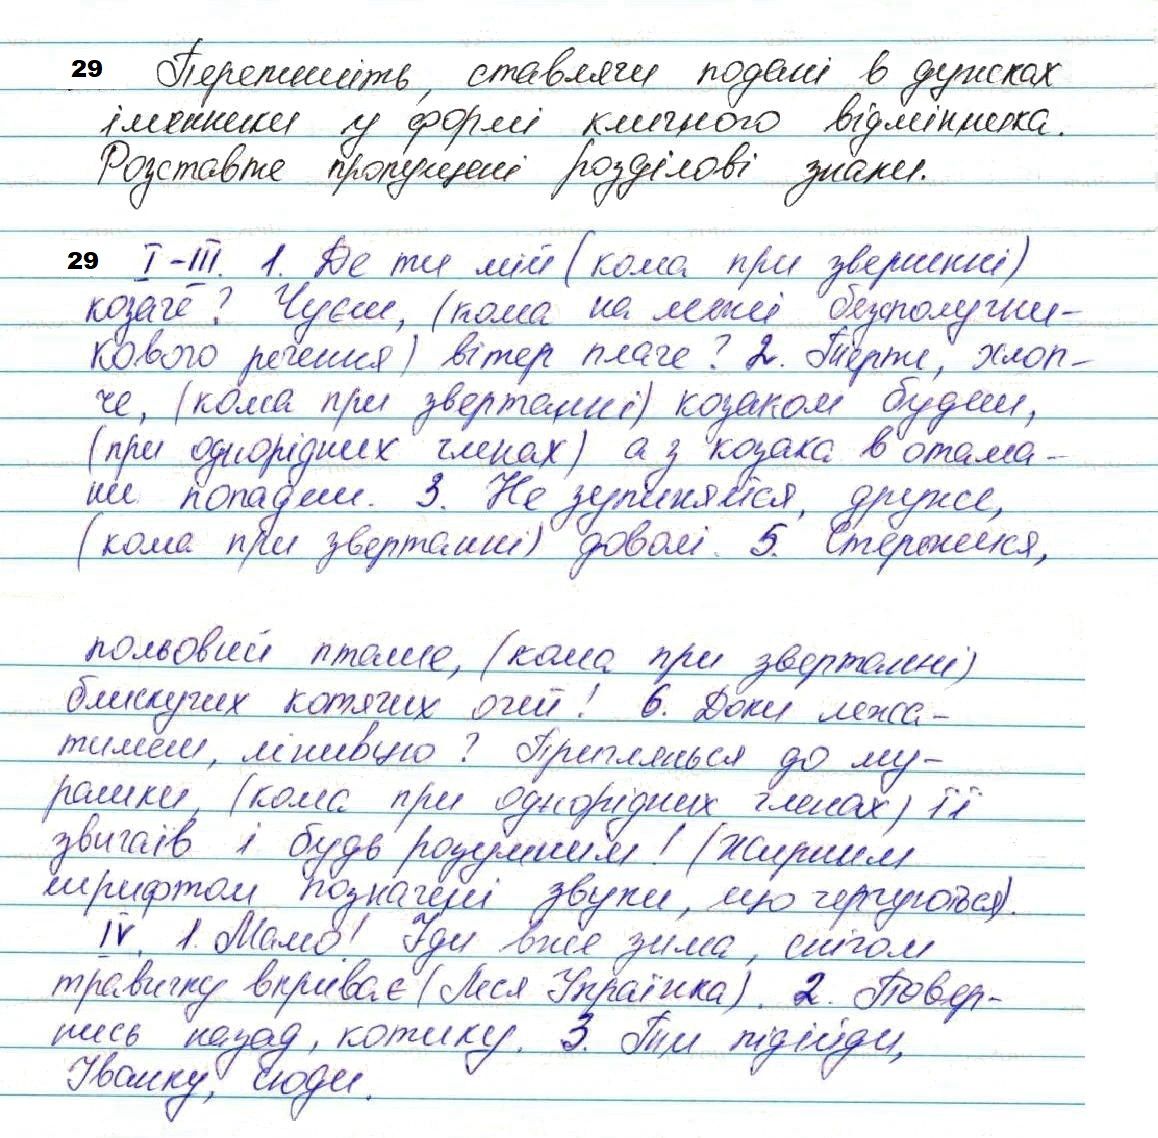 29 Перепишіть, ставлячи подані в дужках
іменники у формі кличного відмінника.
Розставте пропущені розділові знаки.
29 I-III. 1. Де ти мій (кома при звертанні)
козаче? Чуєш, (кома на межі безсполучни-
кового речення) вітер плаче? 2. Терпи, хлоп-
че, (кома при звертанні) козаком будеш,
(при однорідних членах) а з козака в отама-
ни попадеш. 3. Не зупиняйся, друже,
(кома при звертанні) доволі. 5. Стережися,
польовий пташе, (кома при звертанні)
блискучих котячих очей! 6. Доки лежа-
тимеш, лінивцю? Приглянься до му-
рашки, (кома при однорідних членах) її
звичаїв і будь розумним! (Жирним
шрифтом позначені звуки, що чергуються).
IV. 1. Мамо! Іди вже зима, снігом
травичку вкриває (Леся Українка). 2. Повер-
нись назад, котику. 3. Ти підійди,
Іванку, сюди.